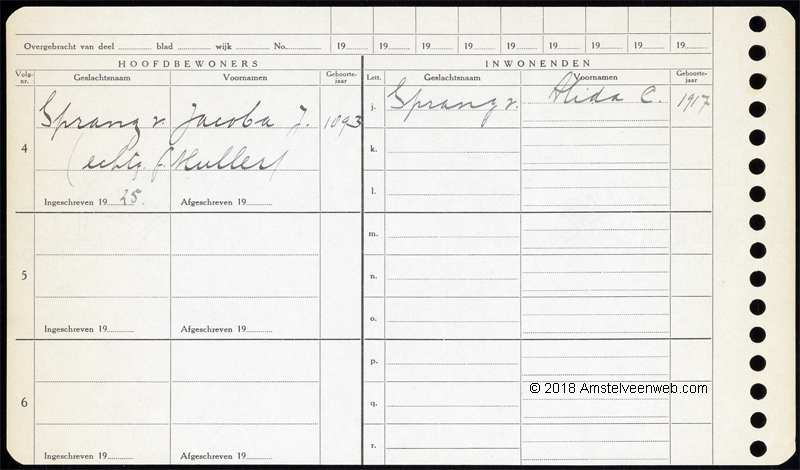 Overgebracht van deel blad wijk No. 19 19 19 19 19 19 19 19 19
HOOFDBEWONERS INWONENDEN
Volg-nr. Geslachtsnaam Voornamen Geboorte-jaar Lett. Geslachtsnaam Voornamen Geboorte-jaar
4 Sprang v. Jacoba J. 1893
(echtg. Muller)
Ingeschreven 1925. Afgeschreven 19
j. Sprang v. Alida C. 1917
k.
l.
5
Ingeschreven 19 Afgeschreven 19
m.
n.
o.
6
Ingeschreven 19 Afgeschreven 19
p.
q.
r.
© 2018 Amstelveenweb.com